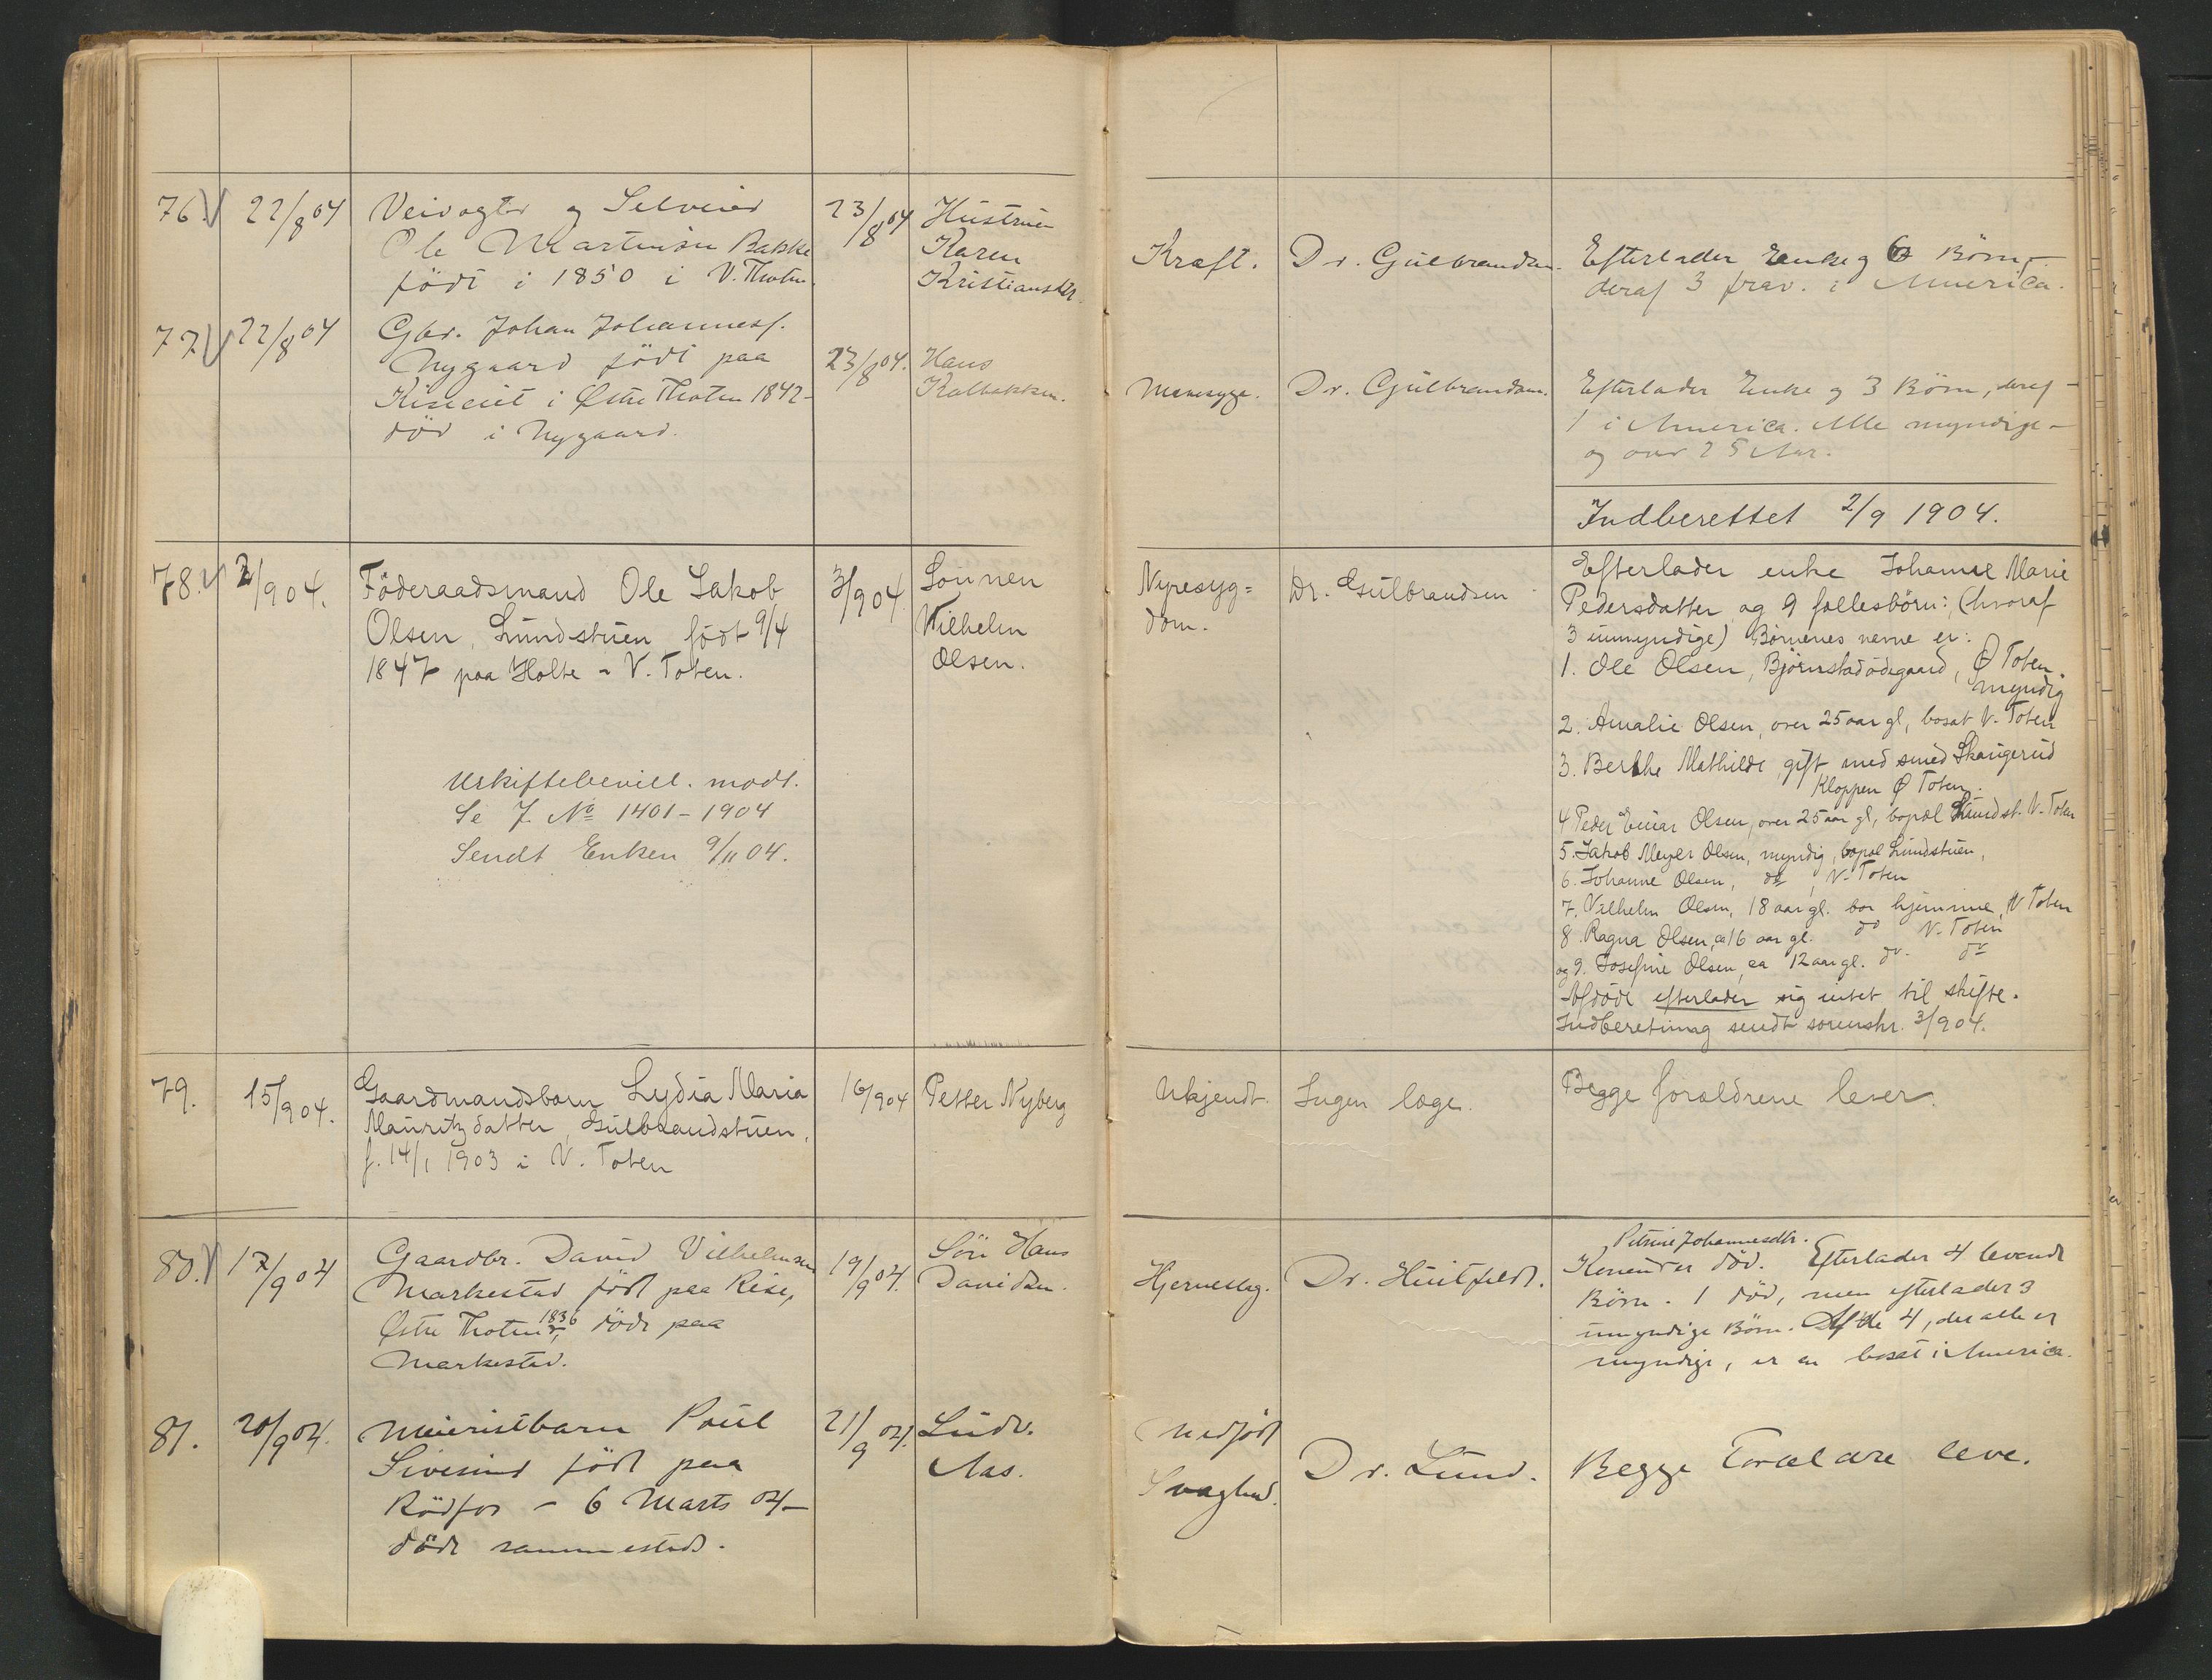 76. 22/8 04 Veivogter og Selveier 23/8 04 Hustruen
Ole Martinsen Bakke Karen Kraft. Dr. Gulbrandsen. Efterlader Enke og 6 Børn -
födt i 1850 i V. Thoten. Kristiansdtr. deraf 3 frav. i America.
77 22/8 04 Gbr. Johan Johannesf.
Nygaard födt paa 23/8 04. Hans
i Østre Thoten 1842 - Kolbækken. Mavesyge. Dr. Gulbrandsen. Efterlader Enke og 3 Börn, deraf
död i Nygaard. 1 i America. Alle myndige -
og over 25 Aar.
Indberettet 2/9 1904.
78. 2/9 04. Föderaadsmand Ole Jakob 3/9 04 Sönnen Nyresyg= Dr. Gulbrandsen Efterlader enke Johanne Marie
Olsen, Lundstuen födt 9/4 Vilhelm dom. Pedersdatter og 9 fællesbörn: (hvoraf
1847 paa Holte - V. Toten. Olsen. 3 umyndige) Børnenes navne er:
1. Ole Olsen, Bjørnstadödegaard, Ø Toten.
myndig
2. Amalie Olsen, over 25 aar gl, bosat V. Toten
3. Berthe Mathilde, gift med smed Skaugerud
Kloppen Ø Toten.
Uskiftebevill. modt.
Se J. No 1401 - 1904
Sendt Enken 9/11 04.
4 Peder Einar Olsen, over 25 aar gl, bopæl Lundst. V. Toten
5. Jakob Meyer Olsen, myndig, bopæl Lundstuen,
6. Johanne Olsen, do, V. Toten
7. Vilhelm Olsen, 18 aar gl. bor hjemme, V Toten
8. Ragna Olsen, ca 16 aar gl. do V. Toten
og 9. Josefine Olsen, ca 12 aar gl. do. do
Afdöde efterlader sig intet til skifte.
Indberetning sendt sorenskr. 3/9 04.
79. 15/9 04. Gaardmandsbarn Lydia Maria 16/9 04 Petter Nyberg Ukjendt. Ingen læge. Begge forældrene lever.
Mauritzdatter, Gulbrandstuen,
f. 14/1 1903 i V. Toten
Petrine Johannesdtr.
80. 17/9 04 Gaardbr. David Vilhelmsen 19/9 04. Sön Hans Hjerneslag. Dr. Huitfeldt. Konen er död. Efterlader 4 levende
Markestad födt paa Rise, Davidsen. Börn. 1 död, men efterlader 3
Østre Thoten 1836, döde paa umyndige Börn. Af de 4, der alle er
Markestad. myndige, er en bosat i America.
81. 20/9 04. Meieristbarn Poul 21/9 04. Ludv. Medfödt
Sivesind födt paa Aas. Svaghed. Dr. Lund. Begge Forældre leve.
Rödfos - 6 Marts 04 -
döde sammesteds.